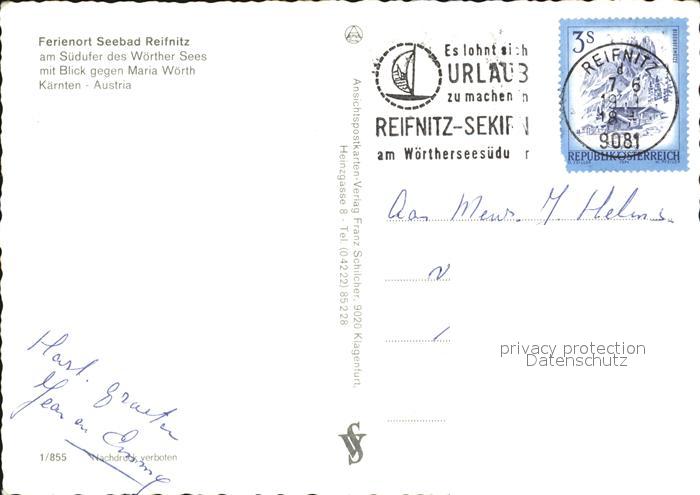 Ferienort Seebad Reifnitz
am Südufer des Wörther Sees
mit Blick gegen Maria Wörth
Kärnten - Austria
Es lohnt sich
URLAUB
zu machen in
REIFNITZ-SEKIRN
am Wörtherseesüdu r
3S
REIFNITZ
9081
REPUBLIK ÖSTERREICH
Ansichtspostkarten-Verlag Franz Schilcher, 9020 Klagenfurt,
Heinzgasse 8 - Tel. (0 42 22) 85 2 28
Aan Mevr. J. Helms
privacy protection
Datenschutz
Hart. groeten
Jean en
1/855 Nachdruck verboten